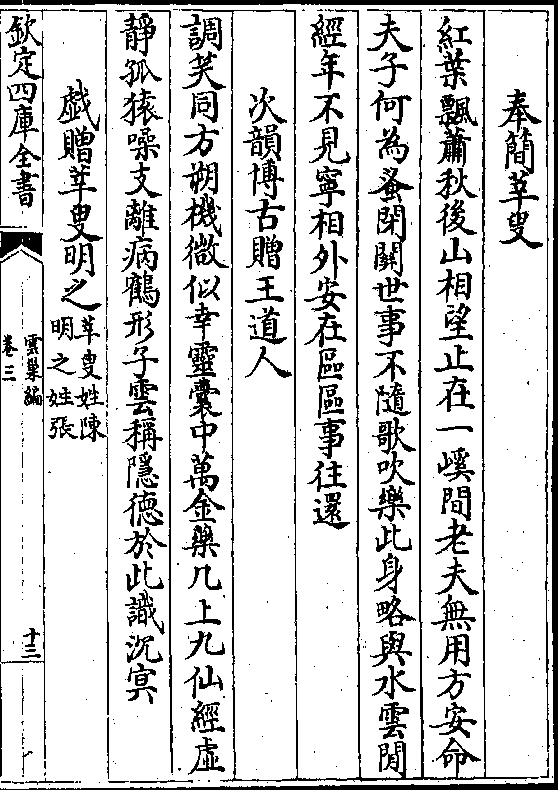 奉簡莘叟
紅葉飄蕭秋後山相望止在一嵠間老夫無用方安命
夫子何為蚤閉關世事不隨歌吹樂此身略與水雲閒
經年不見寧相外安在區區事往還
次韻博古贈王道人
調笑同方朔機微似幸靈囊中萬金藥几上九仙經虛
靜孤猿嗓支離病鶴形子雲稱隱德於此識沉冥
戯贈莘叟明之莘叟姓陳
明之姓張
欽定四庫全書
雲巢編
卷三
十三